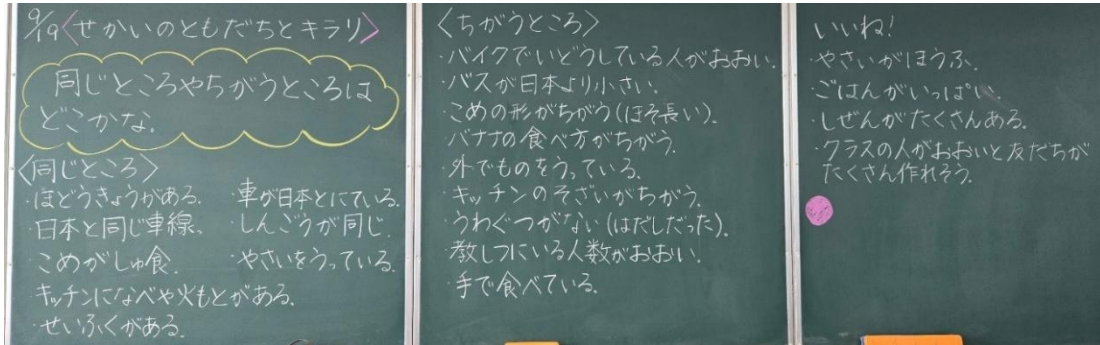 9/19〈せかいのともだちとキラリ〉
同じところやちがうところは
どこかな。
〈同じところ〉
・ほどうきょうがある。 ・車が日本とにている。
・日本と同じ車線。 ・しんごうが同じ。
・こめがしゅ食。 ・やさいをうっている。
・キッチンになべや火もとがある。
・せいふくがある。
〈ちがうところ〉
・バイクでいどうしている人がおおい。
・バスが日本より小さい。
・こめの形がちがう(ほそ長い)。
・バナナの食べ方がちがう。
・外でものをうっている。
・キッチンのそざいがちがう。
・うわぐつがない(はだしだった)。
・教しつにいる人数がおおい。
・手で食べている。
いいね!
・やさいがほうふ。
・ごはんがいっぱい。
・しぜんがたくさんある。
・クラスの人がおおいと友だちが
たくさん作れそう。